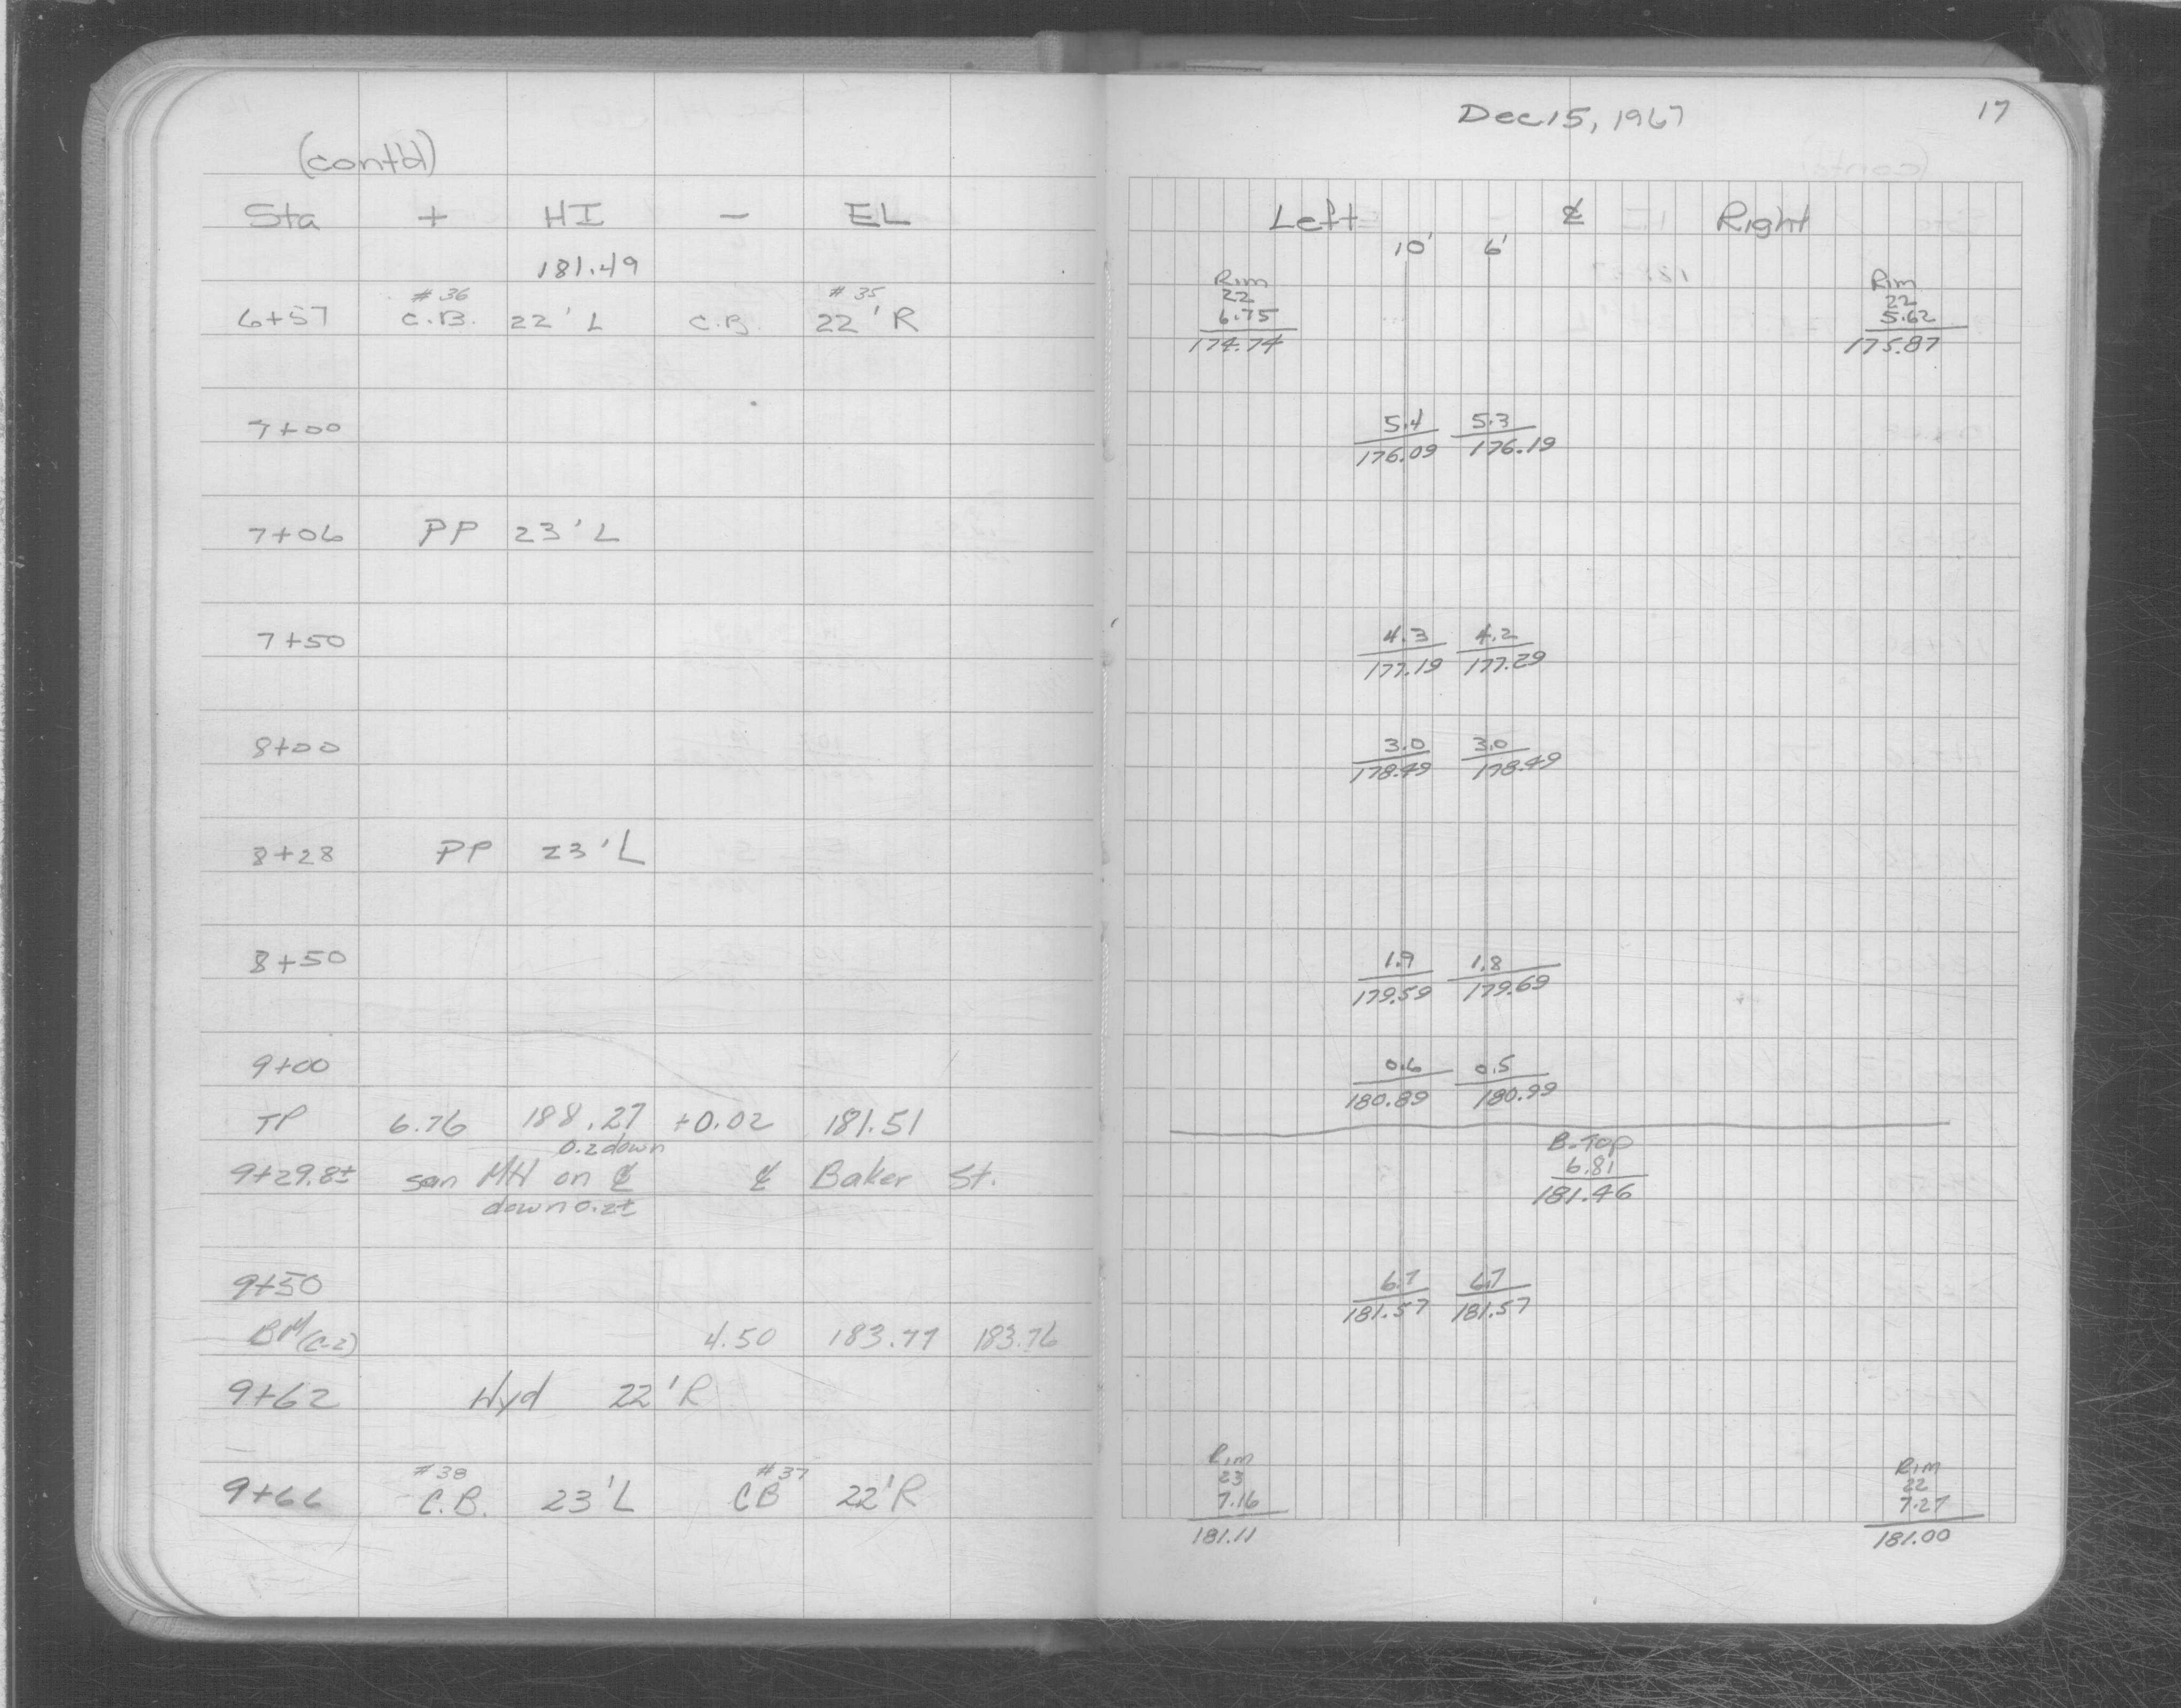 (cont'd)
Sta + HI - EL
181.49
#36 #35
6+57 C.B. 22' L C.B. 22' R
7+00
7+06 PP 23' L
7+50
8+00
8+28 PP 23' L
8+50
9+00
TP 6.76 188.27 +0.02 181.51
0.2 down
9+29.8± san MH on ℄ ℄ Baker St.
down 0.2±
9+50
BM(C-2) 4.50 183.77 183.76
9+62 Hyd 22' R
#38 #37
9+66 C.B. 23' L CB 22' R
Dec 15, 1967 17
Left ℄ Right
10' 6'
Rim Rim
22 22
6.75 5.62
174.74 175.87
5.4 5.3
176.09 176.19
4.3 4.2
177.19 177.29
3.0 3.0
178.49 178.49
1.9 1.8
179.59 179.69
0.6 0.5
180.89 180.99
B-Top
6.81
181.46
6.7 6.7
181.57 181.57
Rim Rim
23 22
7.16 7.27
181.11 181.00